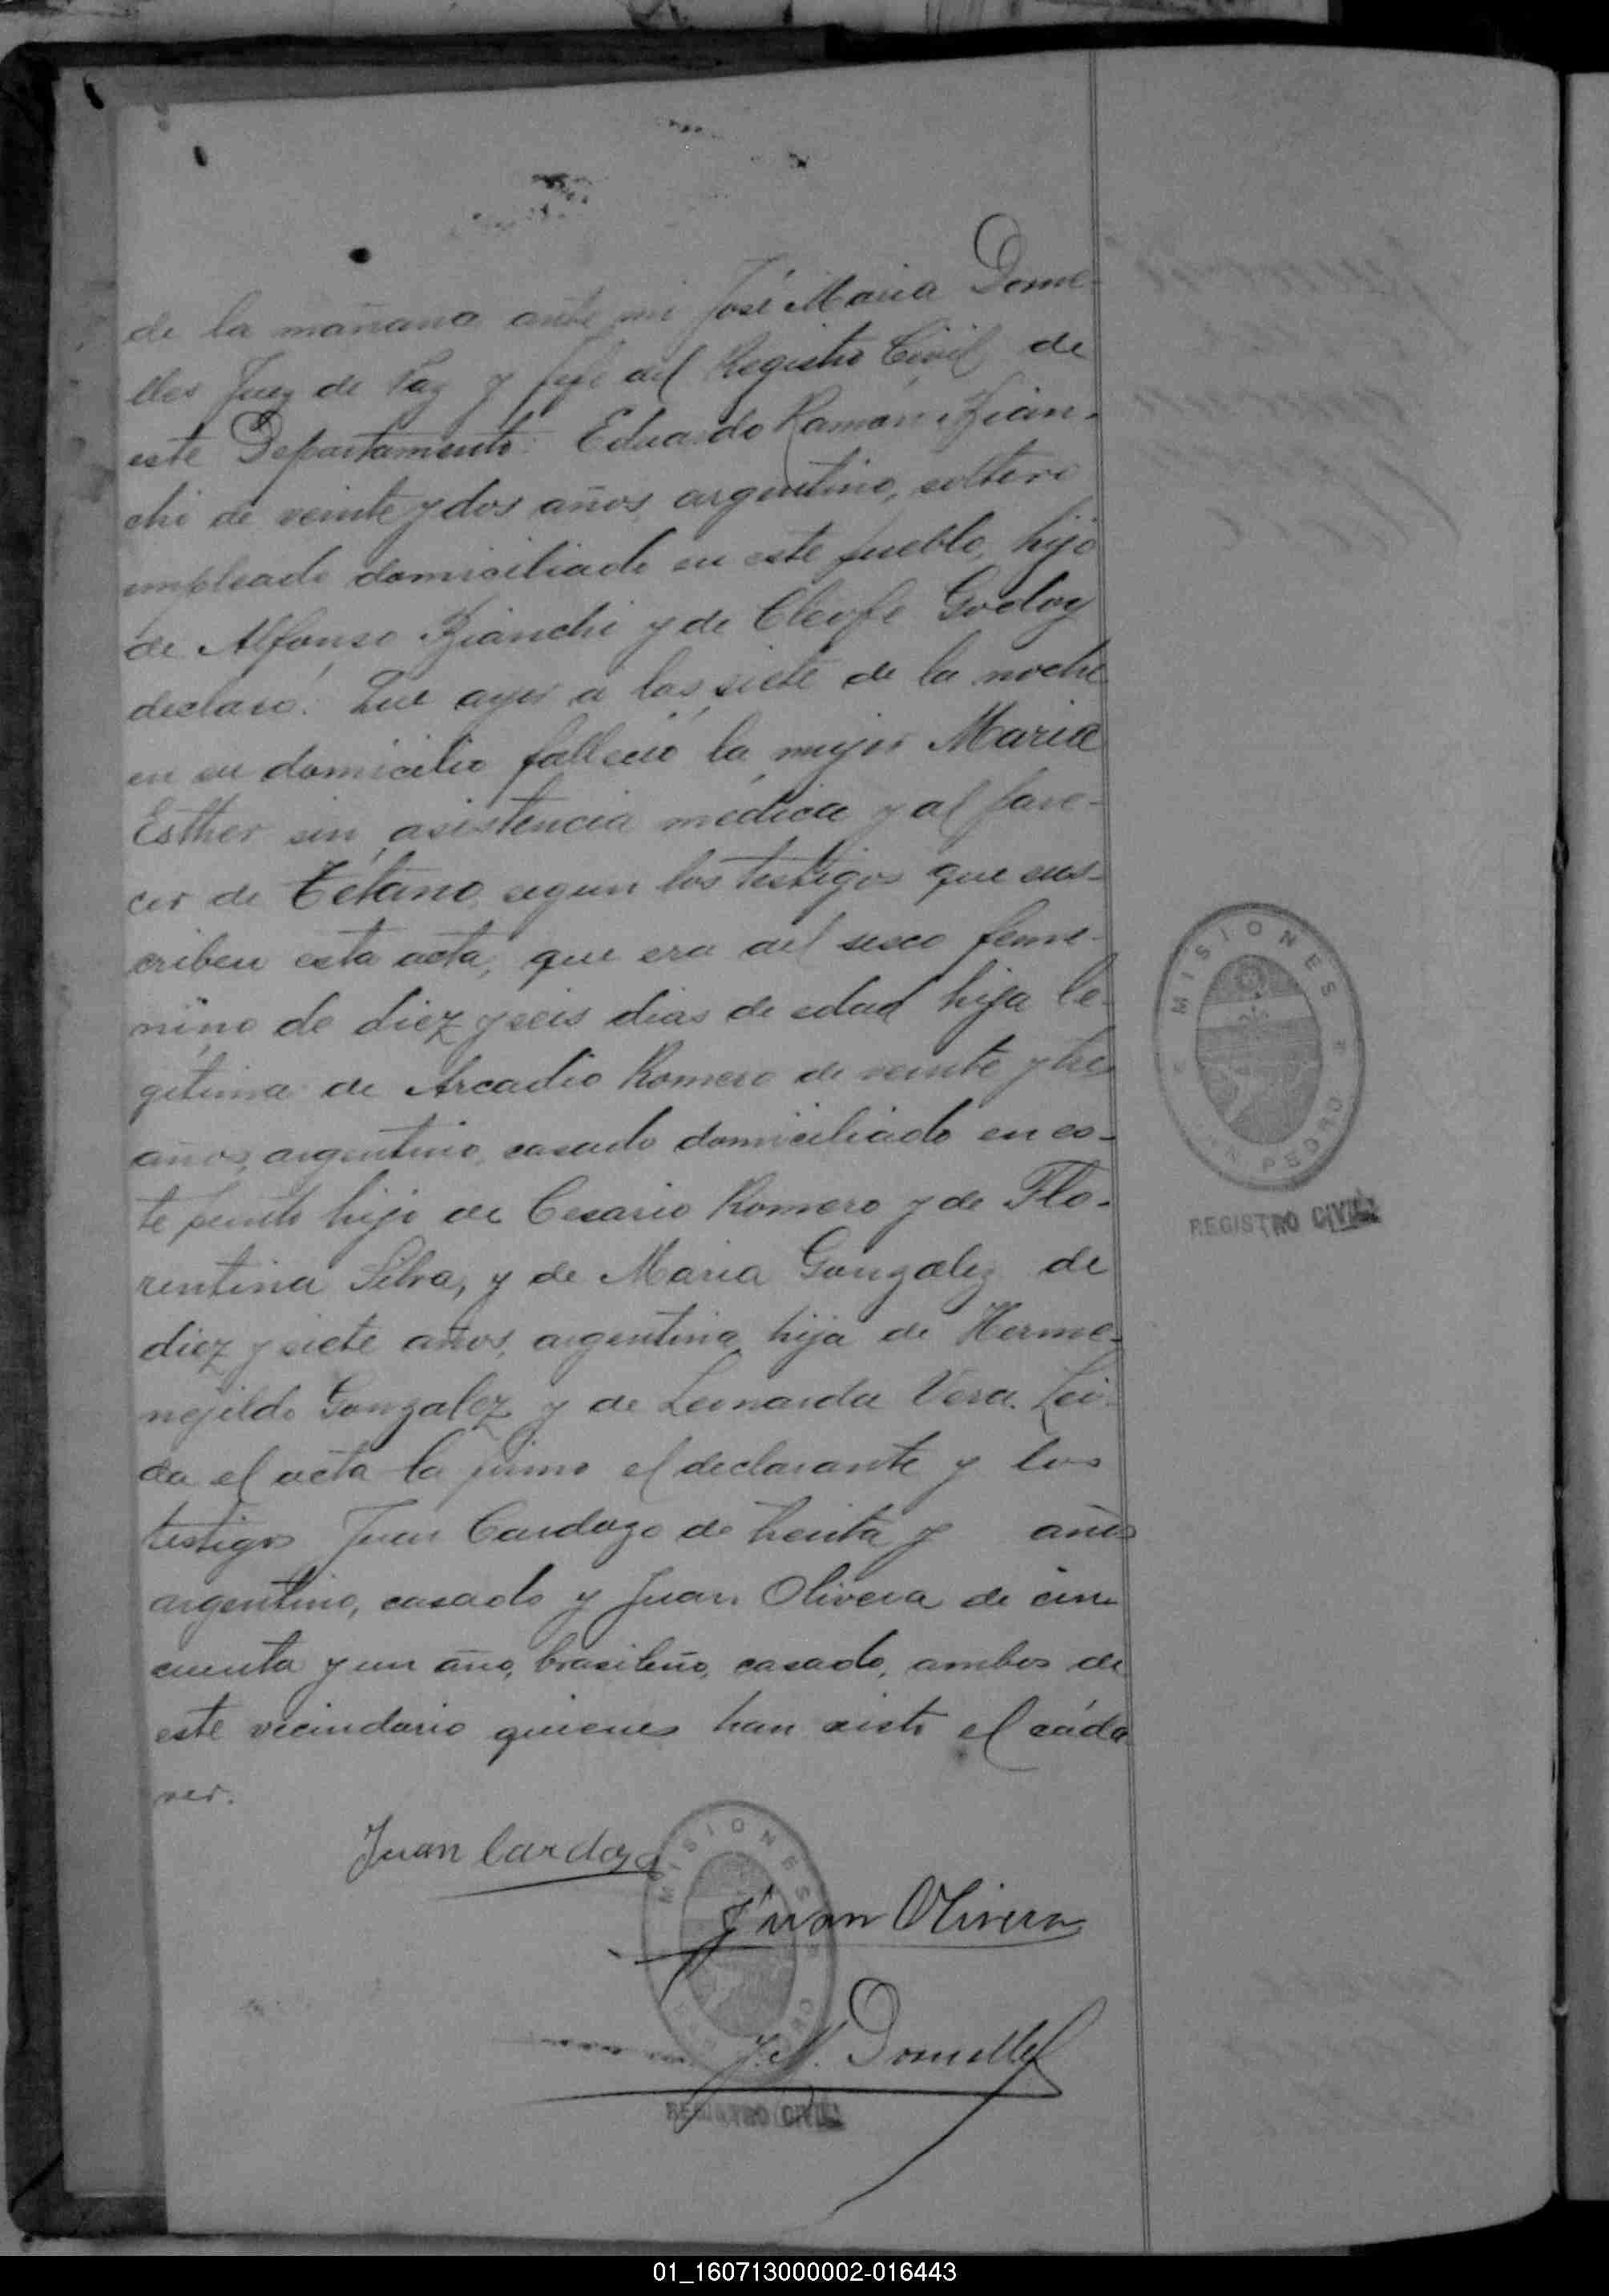 de la mañana ante mi José Maria Dome-
lles Juez de Paz y Jefe del Registro Civil de
este Departamento: Eduardo Ramón Bian-
chi de veinte y dos años, argentino, soltero
empleado domiciliado en este pueblo, hijo
de Alfonso Bianchi y de Cleofe Godoy
declaró: Que ayer a las siete de la noche
en su domicilio falleció la mujer Maria
Esther sin asistencia médica y al pare-
cer de Tétano, segun los testigos que sus-
criben esta acta, que era del sexo feme-
nino de diez y seis dias de edad hija le-
gitima de Arcadio Romero de veinte y tres
años, argentino, casado domiciliado en es-
te punto hijo de Cesario Romero y de Flo-
rentina Silva, y de Maria Gonzalez de
diez y siete años, argentina, hija de Herme-
nejildo Gonzalez y de Leonarda Vera. Lei-
da el acta la firmo el declarante y los
testigos Juan Cardozo de treinta y años
argentino, casado y Juan Olivera de cin
cuenta y un año, brasileño, casado, ambos de
este vecindario quienes han visto el cáda
ver.
MISIONES
SAN PEDRO
REGISTRO CIVIL
Juan Cardozo
MISIONES
Juan Olivera
J. M. Domelles
REGISTRO CIVIL
01_160713000002-016443